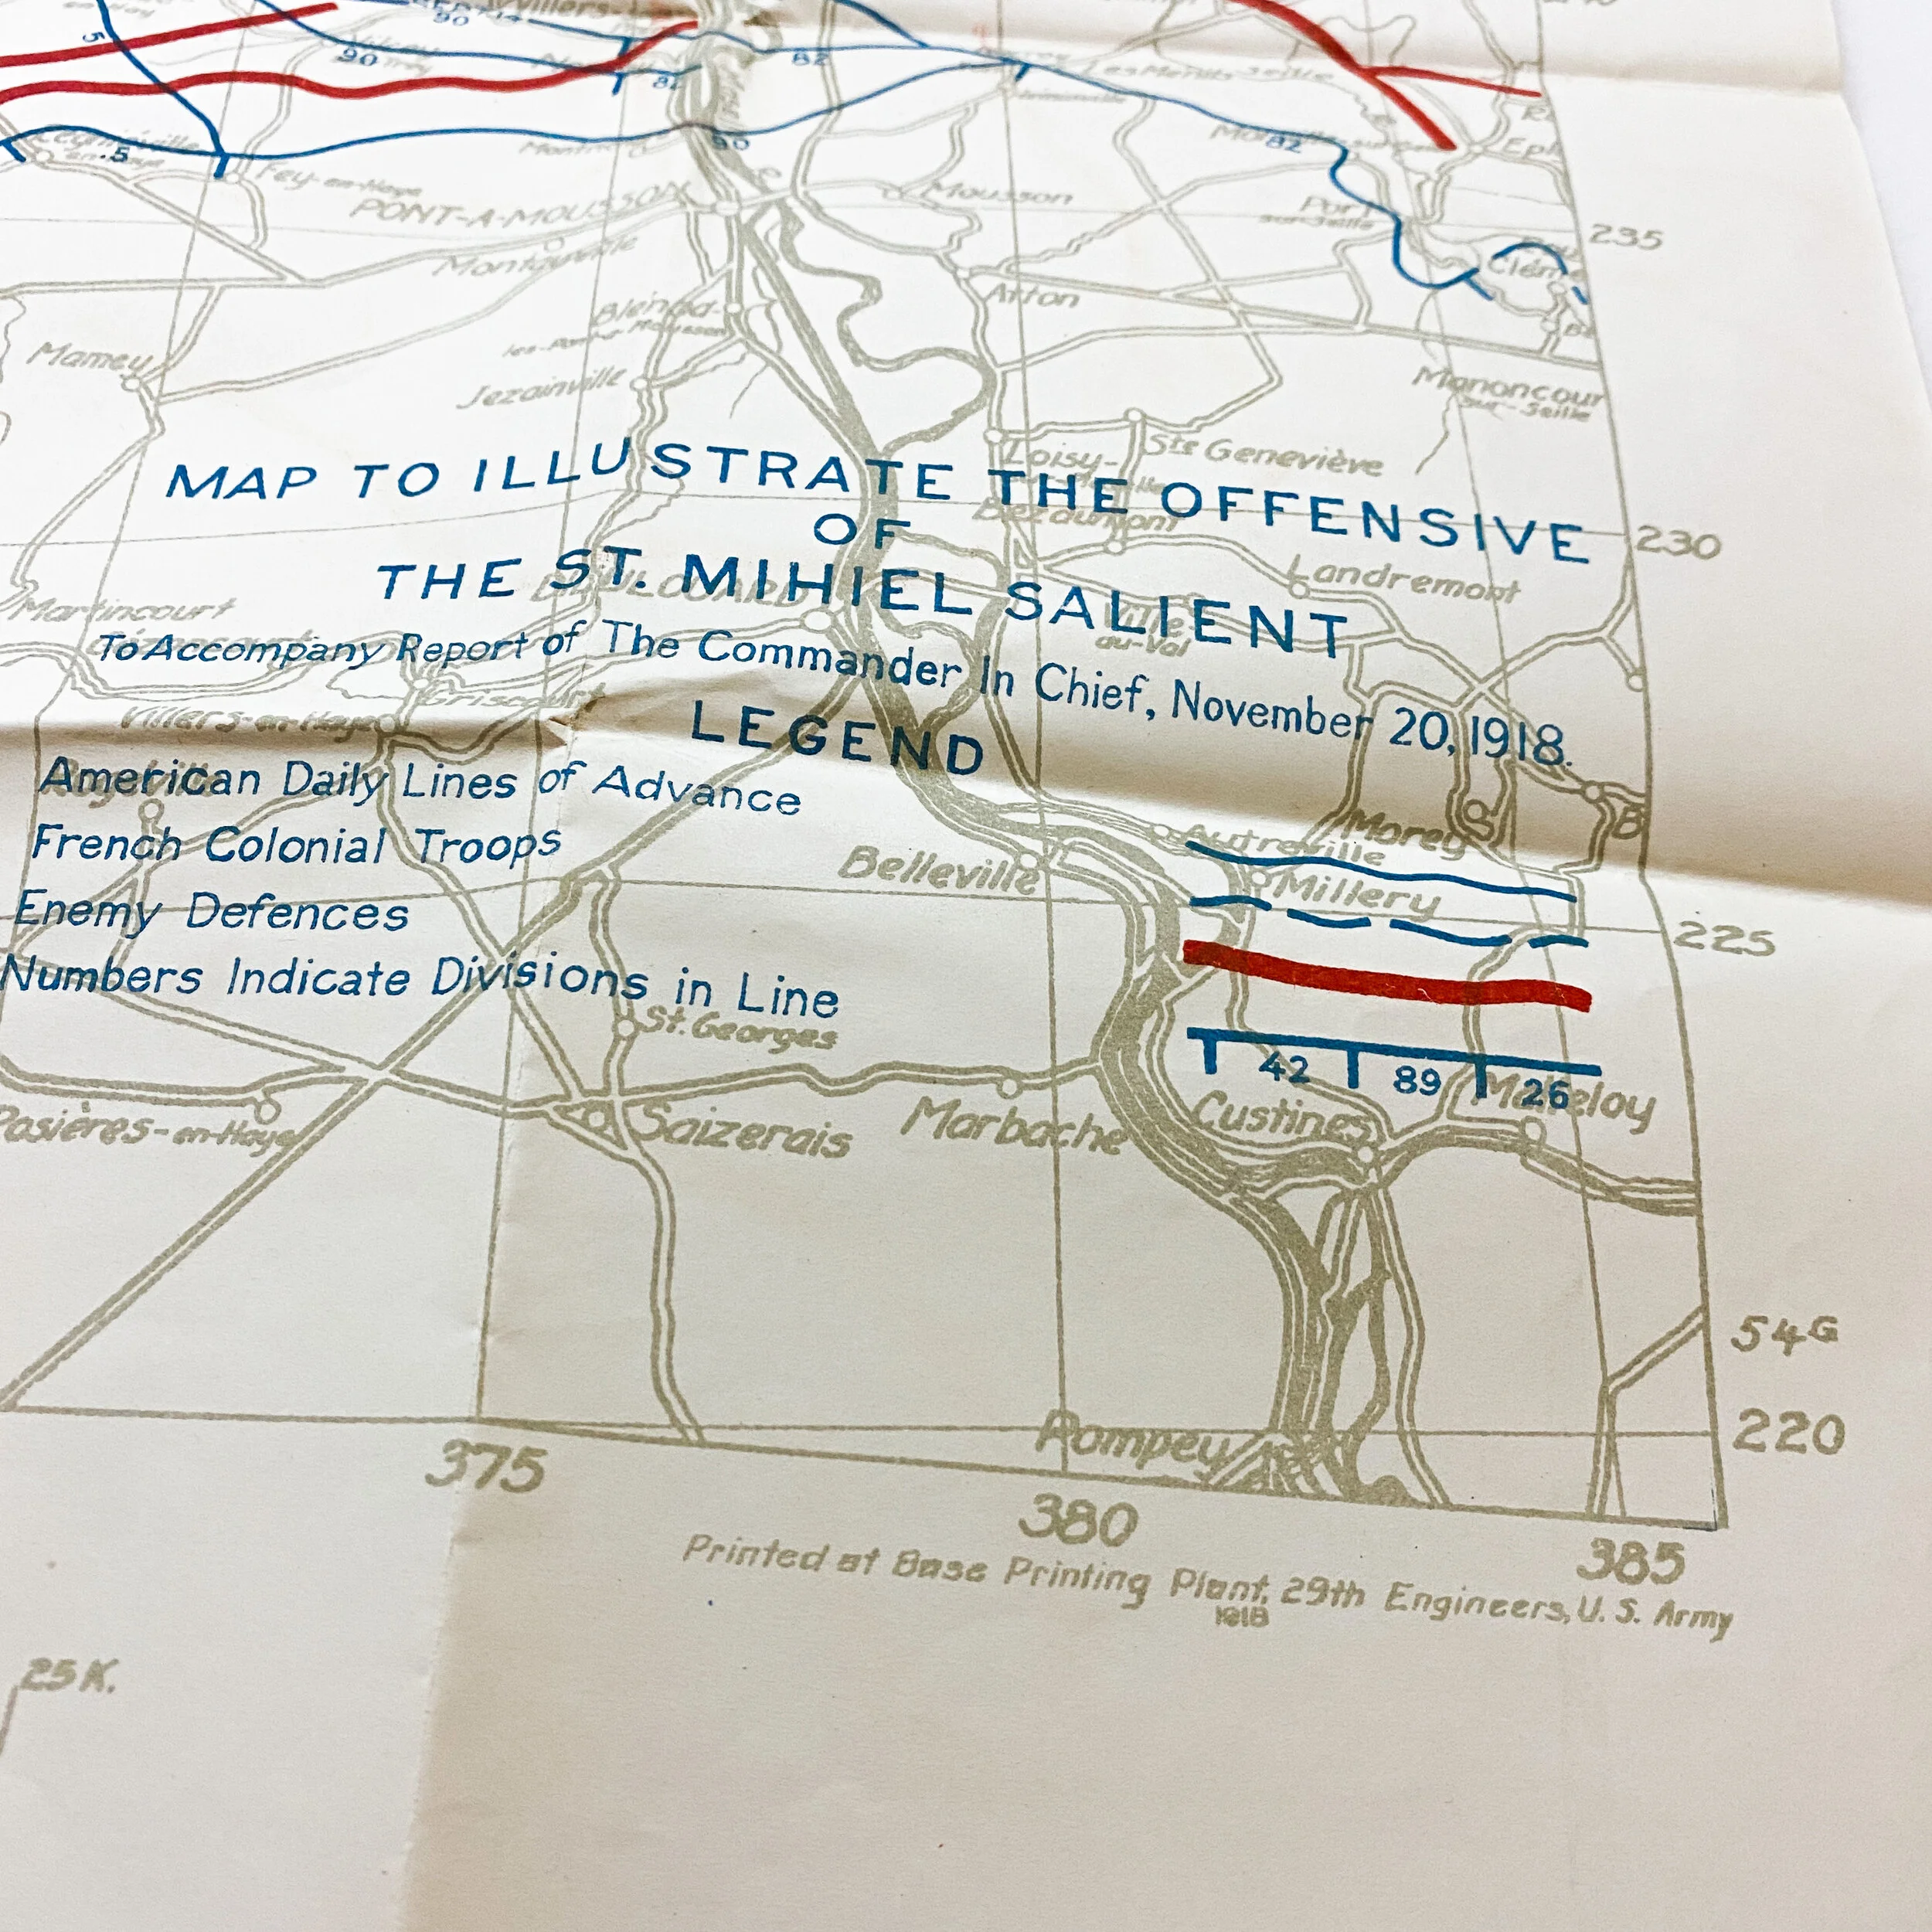 90
5
90
82
82
Les Menils
Seille
.5
90
82
Fey-en-Haye
PONT-A-MOUSSON
Mousson
Port
sur-Seille
235
Montauville
Atton
Blénod-
Mamey
Jezainville
Manoncour
sur-Seille
Loisy-
Ste Geneviève
MAP TO ILLUSTRATE THE OFFENSIVE
230
Bezaumont
OF
Landremont
THE ST. MIHIEL SALIENT
Martincourt
au-Val
To Accompany Report of The Commander In Chief, November 20, 1918.
Griscourt
Villers-en-Haye
LEGEND
American Daily Lines of Advance
French Colonial Troops
Autreville
Morey
B
Belleville
Millery
225
Enemy Defences
Numbers Indicate Divisions in Line
St. Georges
42 89 26
Custines
Rosières-en-Haye
Saizerais
Marbache
54G
220
Pompey
375
380
385
Printed at Base Printing Plant, 29th Engineers, U. S. Army
1918
25 K.